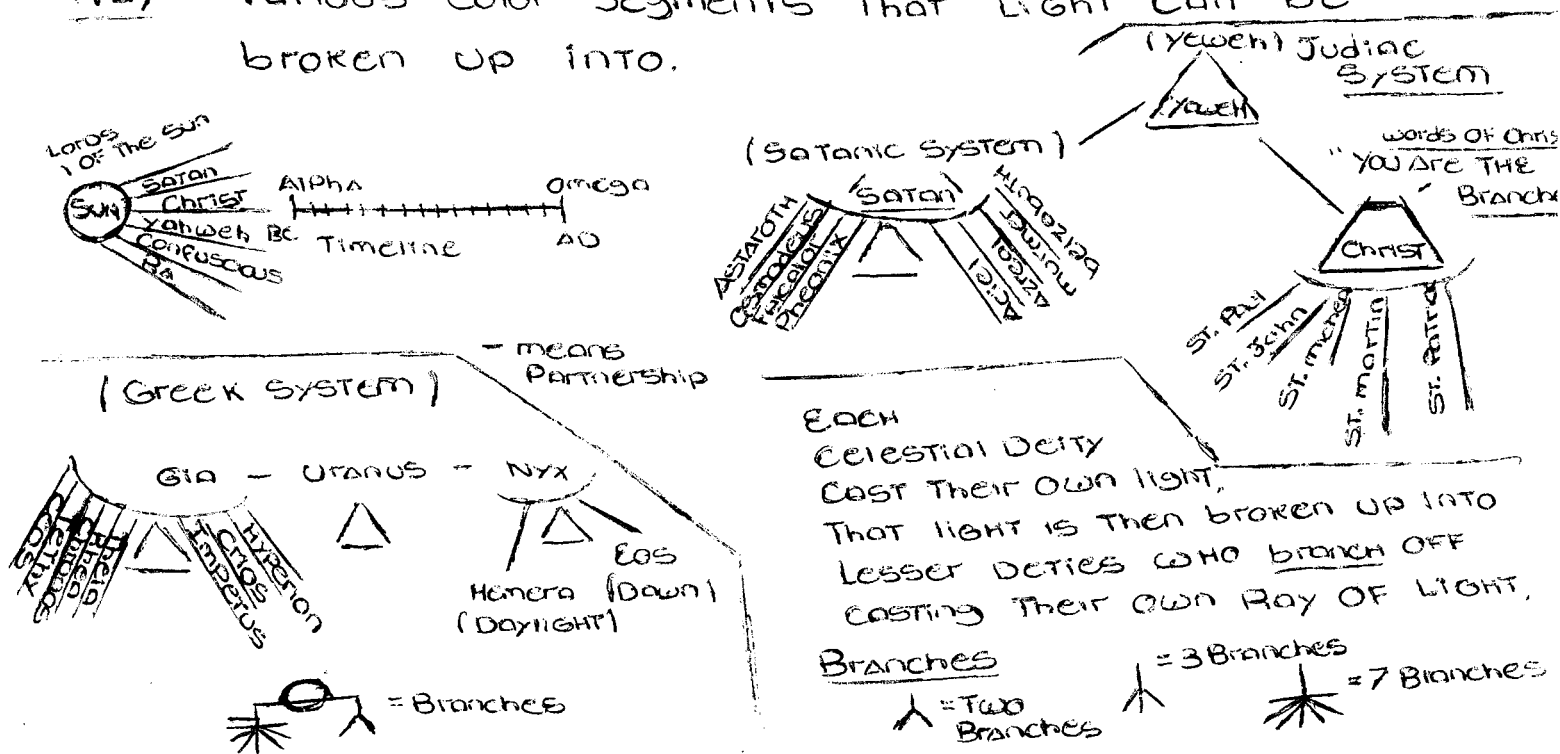 Various Color Segments That Light Can Be
broken up into.
Lords
of The Sun
SUN
Satan
Christ
Yahweh
Confuscious
Ra
Alpha
Omega
BC.
Timeline
AD
(Satanic System)
Satan
Astaroth
Osmodeus
Pheonix
Aciel
Azreal
murmer
belzebuth
(Yeweh) Judiac
System
Yaweh
words of Chris
"You Are The
Branche
Christ
St. Paul
St. John
St. Martin
St. Patric
- means
Partnership
(Greek System)
Gia - Uranus - Nyx
Cos
Tethy
Rhea
Theia
Imperus
Crios
Hyperion
Hemera
(Daylight)
Eos
(Dawn)
= Branches
Each
Celestial Deity
Cast Their Own light,
That light is Then broken up into
Lesser Deties who branch off
casting Their Own Ray of Light.
Branches
= Two
Branches
= 3 Branches
= 7 Branches